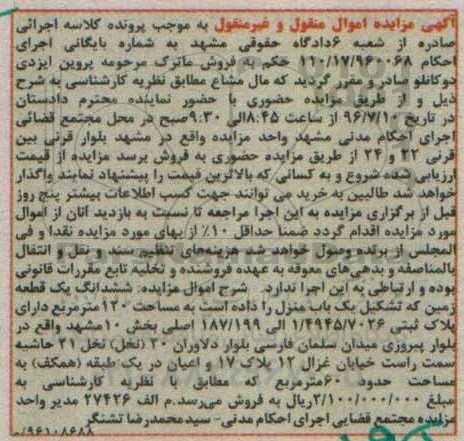 آگهی مزایده اموال منقول و غیرمنقول به موجب پرونده کلاسه اجرائی
صادره از شعبه ۶دادگاه حقوقی مشهد به شماره بایگانی اجرای
احکام ۱۱۰/۱۷/۹۶۰۰۶۸ حکم به فروش ماترک مرحومه پروین ایزدی
دوکانلو صادر و مقرر گردید که مال مشاع مطابق نظریه کارشناسی به شرح
ذیل و از طریق مزایده حضوری با حضور نماینده محترم دادستان
در تاریخ ۹۶/۷/۱۰ از ساعت ۸:۴۵الی ۹:۳۰صبح در محل مجتمع قضائی
اجرای احکام مدنی مشهد واحد مزایده واقع در مشهد بلوار قرنی بین
قرنی ۲۲ و ۲۴ از طریق مزایده حضوری به فروش برسد مزایده از قیمت
ارزیابی شده شروع و به کسانی که بالاترین قیمت را پیشنهاد نمایند واگذار
خواهد شد طالبین به خرید می توانند جهت کسب اطلاعات بیشتر پنج روز
قبل از برگزاری مزایده به این اجرا مراجعه تا نسبت به بازدید آنان از اموال
مورد مزایده اقدام گردد ضمنا حداقل ۱۰٪ از بهای مورد مزایده نقدا و فی
المجلس از برنده وصول خواهد شد هزینه‌های تنظیم سند و نقل و انتقال
بالمناصفه و بدهی‌های معوقه به عهده فروشنده و تخلیه تابع مقررات قانونی
بوده و ارتباطی به این اجرا ندارد. شرح اموال مزایده: ششدانگ یک قطعه
زمین که تشکیل یک باب منزل را داده است به مساحت ۱۲۰مترمربع دارای
پلاک ثبتی ۱/۴۹۴۵/۷۰۲۶ الی ۱۸۷/۱۹۹ اصلی بخش ۱۰مشهد واقع در
بلوار پیروزی میدان سلمان فارسی بلوار دلاوران ۲۰ (نخل) نخل ۲۱ حاشیه
سمت راست خیابان غزال ۱۲ پلاک ۱۷ و اعیان در یک طبقه (همکف) به
مساحت حدود ۶۰مترمربع که مطابق با نظریه کارشناسی به
مبلغ ۲/۱۰۰/۰۰۰/۰۰۰ریال به فروش می‌رسد.م الف ۲۷۴۲۶ مدیر واحد
مزایده مجتمع قضایی اجرای احکام مدنی- سید محمدرضا تشتگر
/۹۶۱۰۸۶۸۸